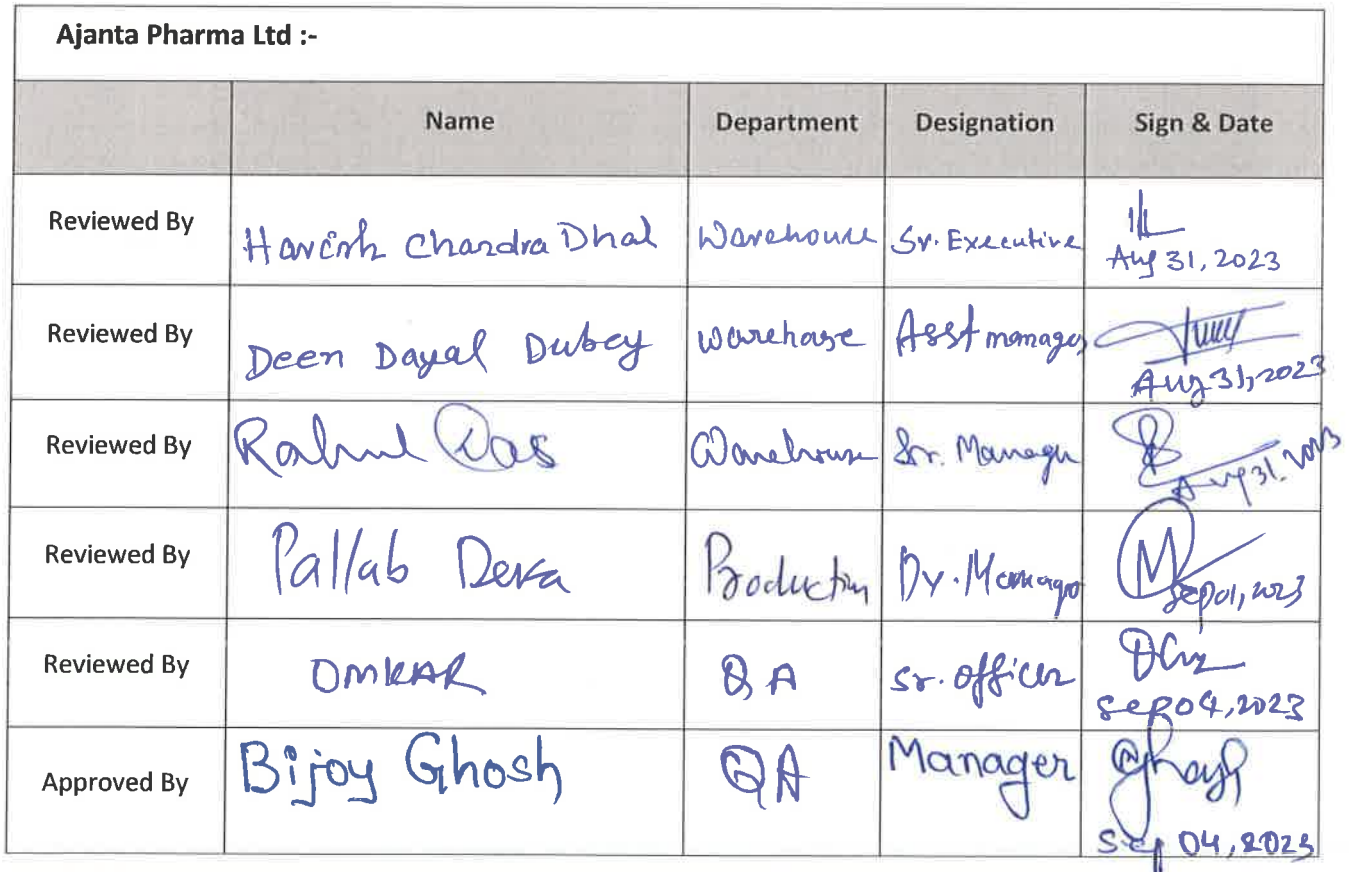 Ajanta Pharma Ltd :-
Name Department Designation Sign & Date
Reviewed By Harish Chandra Dhal Warehouse Sr. Executive
Aug 31, 2023
Reviewed By Deen Dayal Dubey warehouse Asst manager
Aug 31, 2023
Reviewed By Rahul Das Warehouse Sr. Manager
Aug 31, 2023
Reviewed By Pallab Deka Production Dy. Manager
Sep 01, 2023
Reviewed By OMKAR QA Sr. officer
Sep 04, 2023
Approved By Bijoy Ghosh QA Manager
Sep 04, 2023